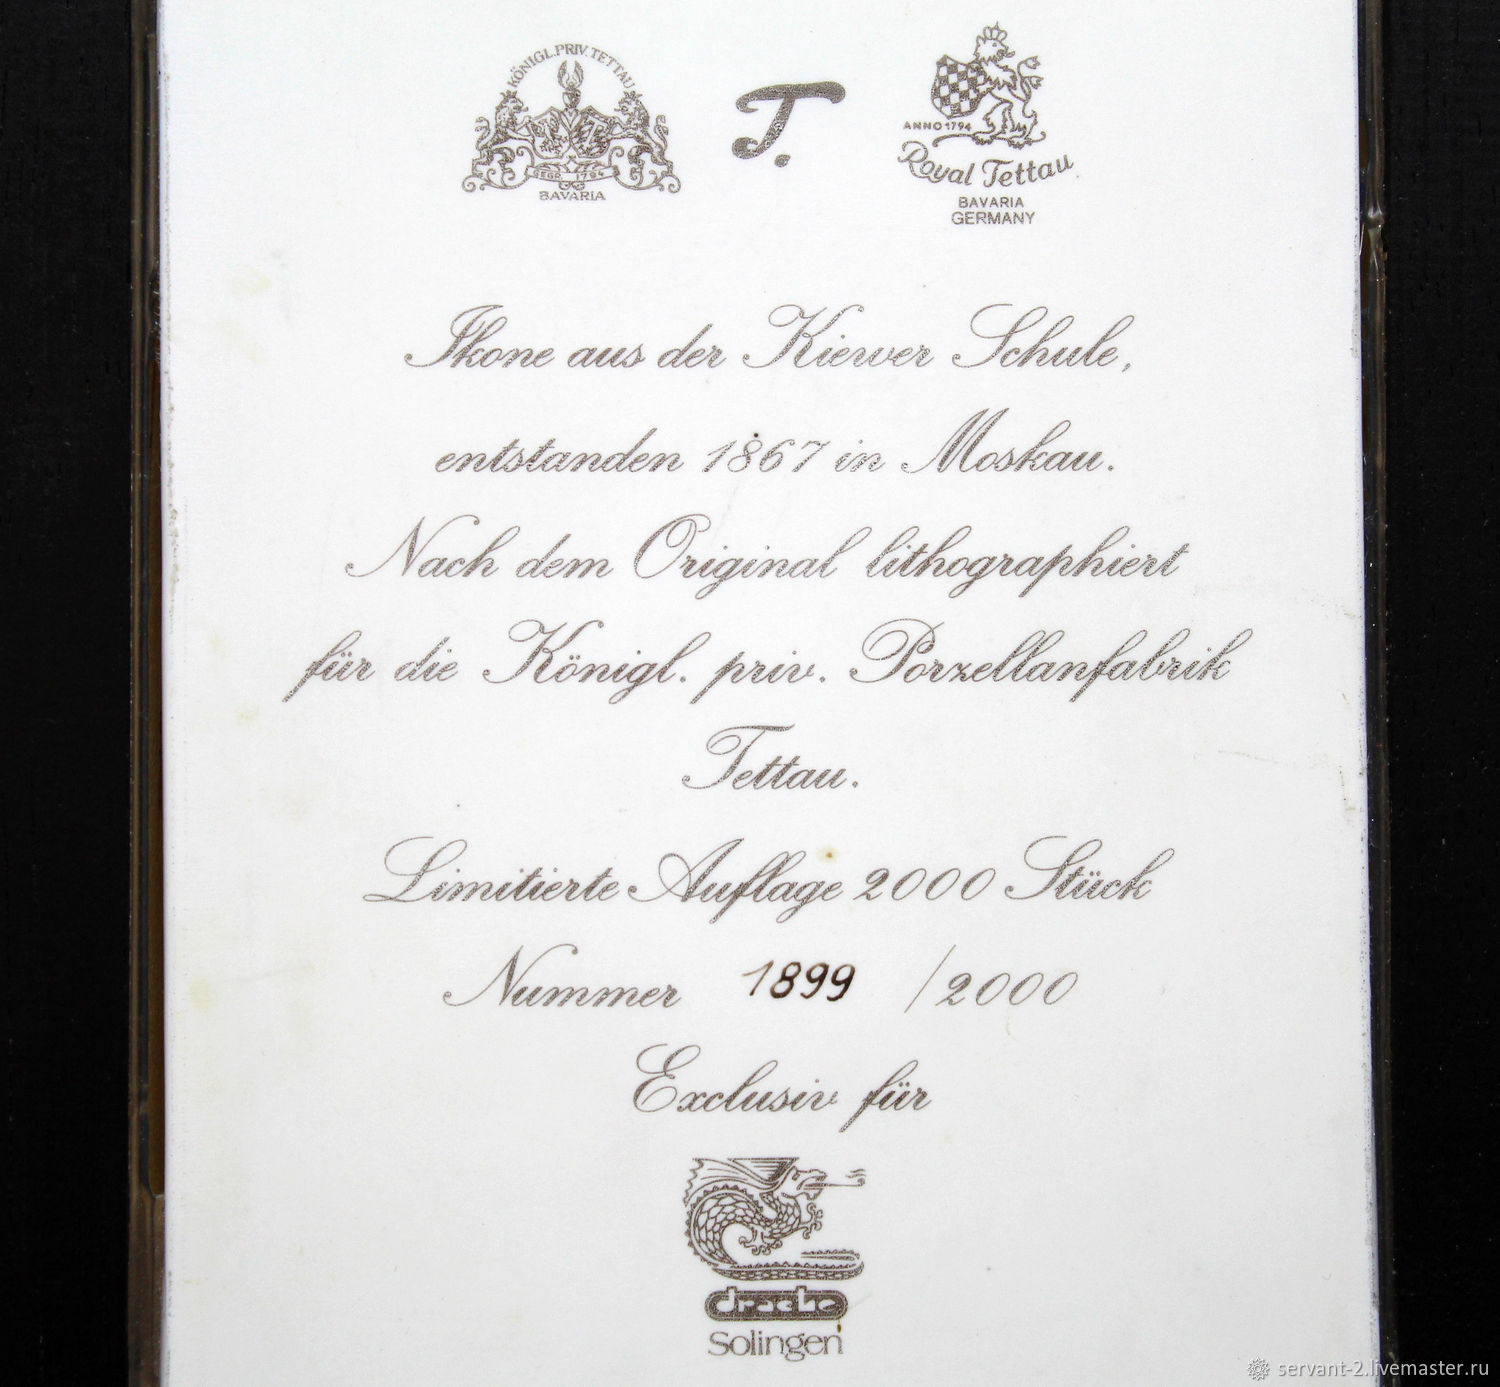 KÖNIGL. PRIV. TETTAU
GEGR. 1794
BAVARIA
T.
ANNO 1794
Royal Tettau
BAVARIA
GERMANY
Ikone aus der Kiewer Schule,
entstanden 1867 in Moskau.
Nach dem Original lithographiert
für die Königl. priv. Porzellanfabrik
Tettau.
Limitierte Auflage 2000 Stück
Nummer 1899 /2000
Exclusiv für
drache
Solingen
servant-2.livemaster.ru